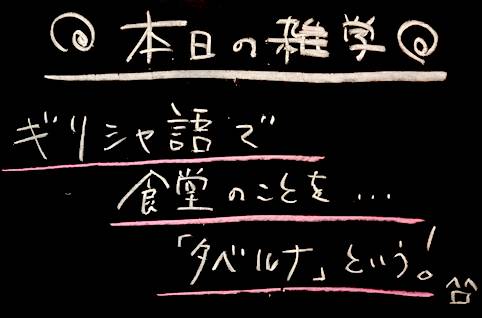 本日の雑学
ギリシャ語で
食堂のことを…
「タベルナ」という!